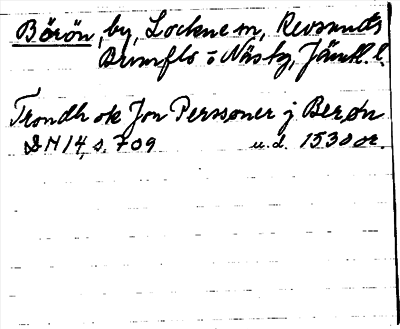 Börön, by, Lockne sn, Revsunds
Brunflo o Näsby, Jämtl. l.
Trondh ok Jon Personer j Berøn
DN 14, s. 709 u.d. 1530 or.